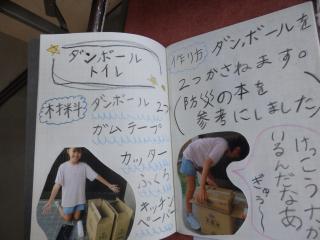 ダンボール
トイレ
材料
ダンボール 2つ
ガムテープ
カッター
ふくろ
キッチン
ペーパー
作り方
ダンボールを
2つかさねます。
(防災の本を
参考にしました)
けっこう力が
いるんだなあ
ぎゅう〜